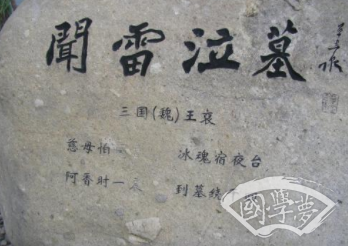 聞雷泣墓
三国(魏)王裒
慈母怕
冰魂宿夜台
阿香时一
到墓绕
國學夢